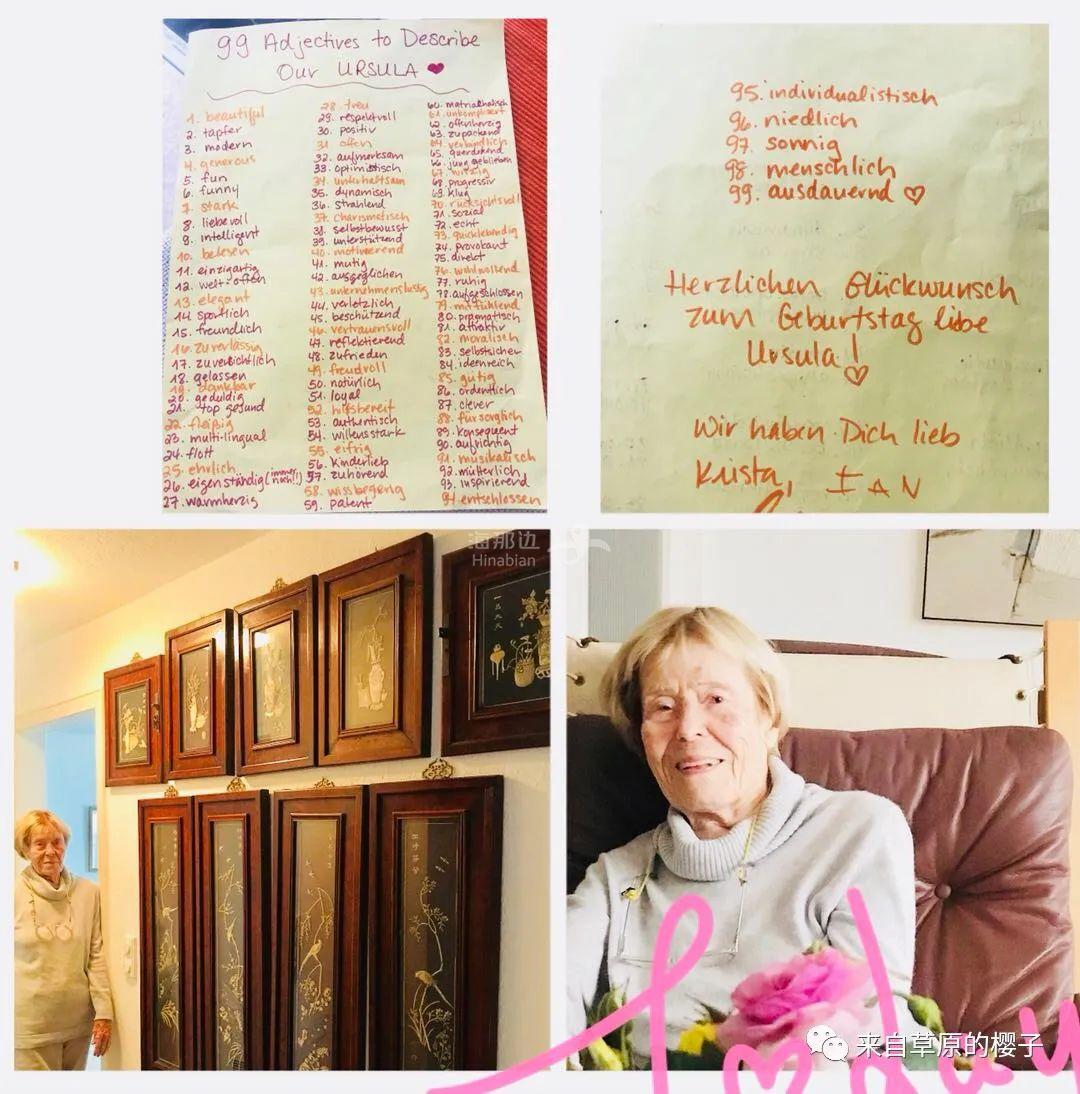 99 Adjectives to Describe
Our URSULA ♥
1. beautiful
2. tapfer
3. modern
4. generous
5. fun
6. funny
7. stark
8. liebevoll
9. intelligent
10. belesen
11. einzigartig
12. welt-offen
13. elegant
14. sportlich
15. freundlich
16. zuverlässig
17. zuversichtlich
18. gelassen
19. dankbar
20. geduldig
21. top gesund
22. fleißig
23. multi-lingual
24. flott
25. ehrlich
26. eigenständig (immer noch!!)
27. warmherzig
28. treu
29. respektvoll
30. positiv
31. offen
32. aufmerksam
33. optimistisch
34. unterhaltsam
35. dynamisch
36. strahlend
37. charismatisch
38. selbstbewusst
39. unterstützend
40. motivierend
41. mutig
42. ausgeglichen
43. unternehmenslustig
44. verletzlich
45. beschützend
46. vertrauensvoll
47. reflektierend
48. zufrieden
49. freudvoll
50. natürlich
51. loyal
52. hilfsbereit
53. authentisch
54. willensstark
55. eifrig
56. kinderlieb
57. zuhörend
58. wissbegierig
59. patent
60.
61. unkompliziert
62. offenherzig
63. zupackend
64. verbindlich
65. querdenkend
66. jung geblieben
67. witzig
68. progressiv
69. klug
70. rücksichtsvoll
71. sozial
72. echt
73. quicklebendig
74. provokant
75. direkt
76. wohlwollend
77. ruhig
78. aufgeschlossen
79. mitfühlend
80. pragmatisch
81. attraktiv
82. moralisch
83. selbstsicher
84. ideenreich
85. gütig
86. ordentlich
87. clever
88. fürsorglich
89. konsequent
90. aufrichtig
91. musikalisch
92. mütterlich
93. inspirierend
94. entschlossen
95. individualistisch
96. niedlich
97. sonnig
98. menschlich
99. ausdauernd ♡
Herzlichen Glückwunsch
zum Geburtstag liebe
Ursula! ♡
Wir haben Dich lieb
Krista, IAN
海那边
Hinabian
来自草原的樱子